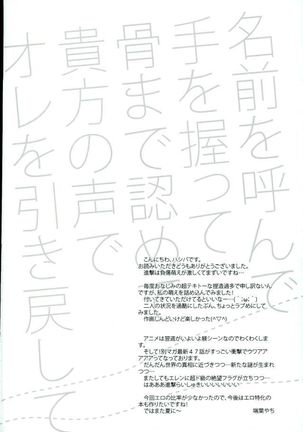 名前を呼んで
手を握って
骨まで認めて
貴方の声で
オレを引き戻して
こんにちわ、ハシバです。
お読みいただきどうもありがとうございました。
進撃は負傷萌えが激しくてまずいですね…
一毎度おなじみの超テキトーな捏造過多で申し訳ない
んですが、私の萌えを詰め込んでみました!
付いてきていただけてるといいな…(´;ω;`)
二人の状況を過酷にしたぶん、ちょっとラブめにして
みました。
作画しんどいけど楽しかった(^▽^)
アニメは捏造がいよいよ躾シーンなのでみています。
そして!別マガ最新47話がすっごい衝撃でウリアア
アアアってなっております。
だんだん世界の真相に近づきつつ…新たな謎が生まれ
つつ…
またしてもエレンに超ド級の絶望フラグが立ちつつ…
はあああ進撃らいしゅきいいいいいい!
今回エロの比率が少なかったので、今後はエロ特化の
本も作りたいですね!
ではまた夏に〜
瑞葉やち